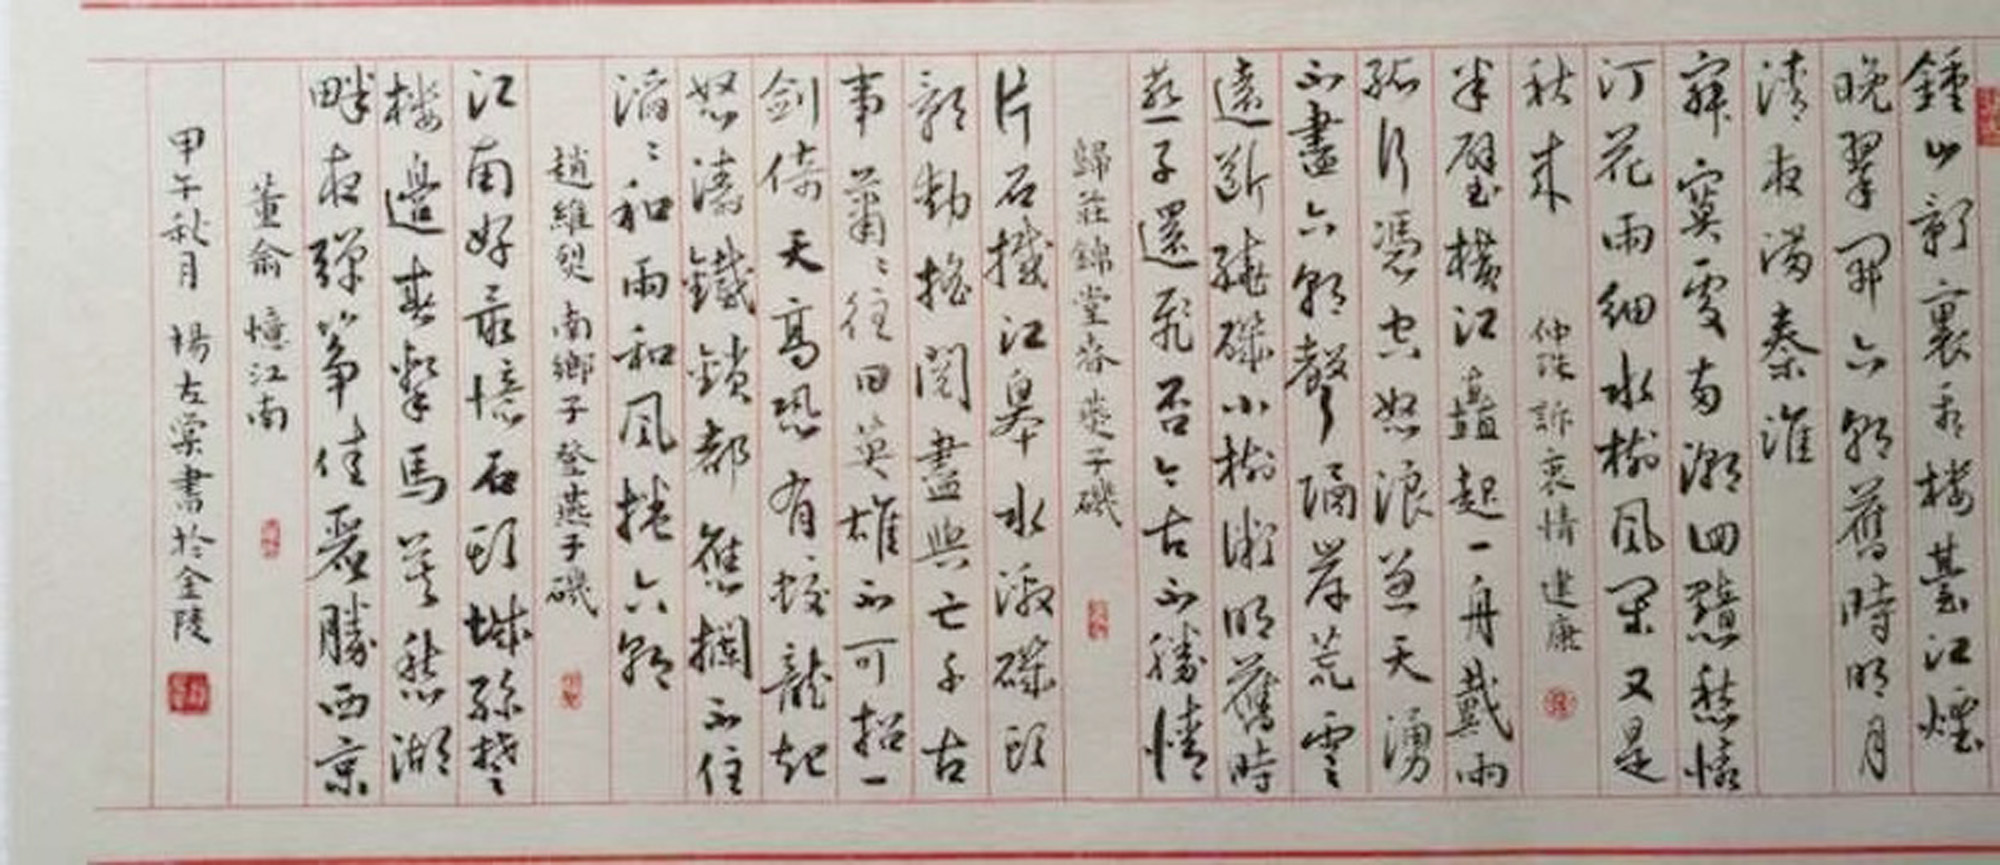 鍾山影裏看樓臺江煙
晚翠開六朝舊時明月
清夜滿秦淮
寂寞處兩潮回黯愁懷
汀花雨細水樹風閑又是
秋來 仲殊訴衷情建康
半壁橫江矗起一舟載雨
孤行憑空怒浪兼天湧
不盡六朝聲隔岸荒雲
遠斷繞磯小樹微明舊時
燕子還飛否今古不勝情
歸莊錦堂春燕子磯
片石截江皋水激磯頭
影動搖閱盡興亡千古
事蕭〻往日英雄不可招一
劍倚天高恐有蛟龍起
怒濤鐵鎖都應攔不住
滔〻和雨和風捲六朝
趙維烈 南鄉子登燕子磯
江南好最憶石頭城孫楚
樓邊春繫馬莫愁湖
畔夜彈箏佳麗勝西京
董俞 憶江南
甲午秋月 楊左棠書於金陵